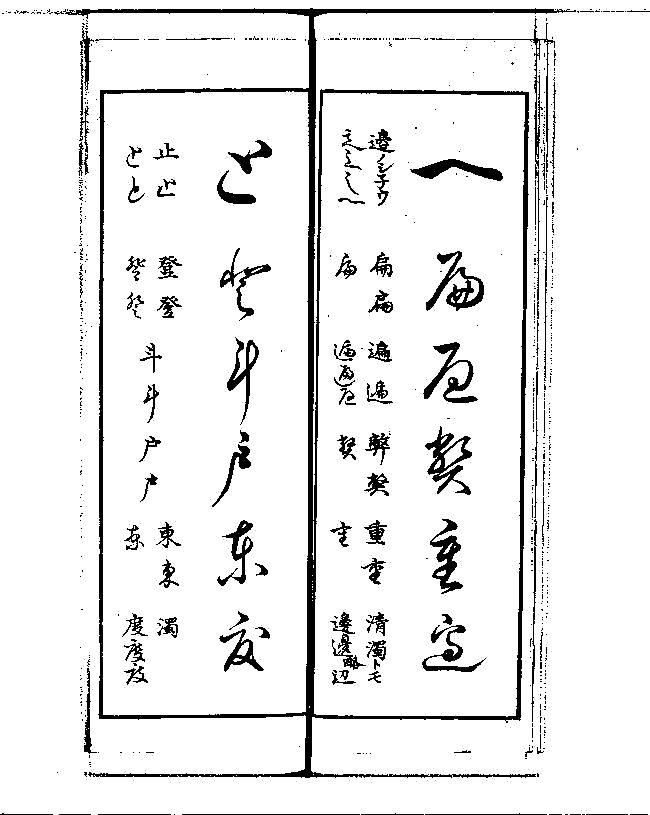 へ扁遍弊重邊
邊ノ 扁扁 遍遍 弊弊 重重 清濁トモ
扁 遍遍遍 弊 重 邊邊略辺
と登斗戸東度
止止 登登 斗斗 戸戸 東東 濁
とと 登登 東 度度度